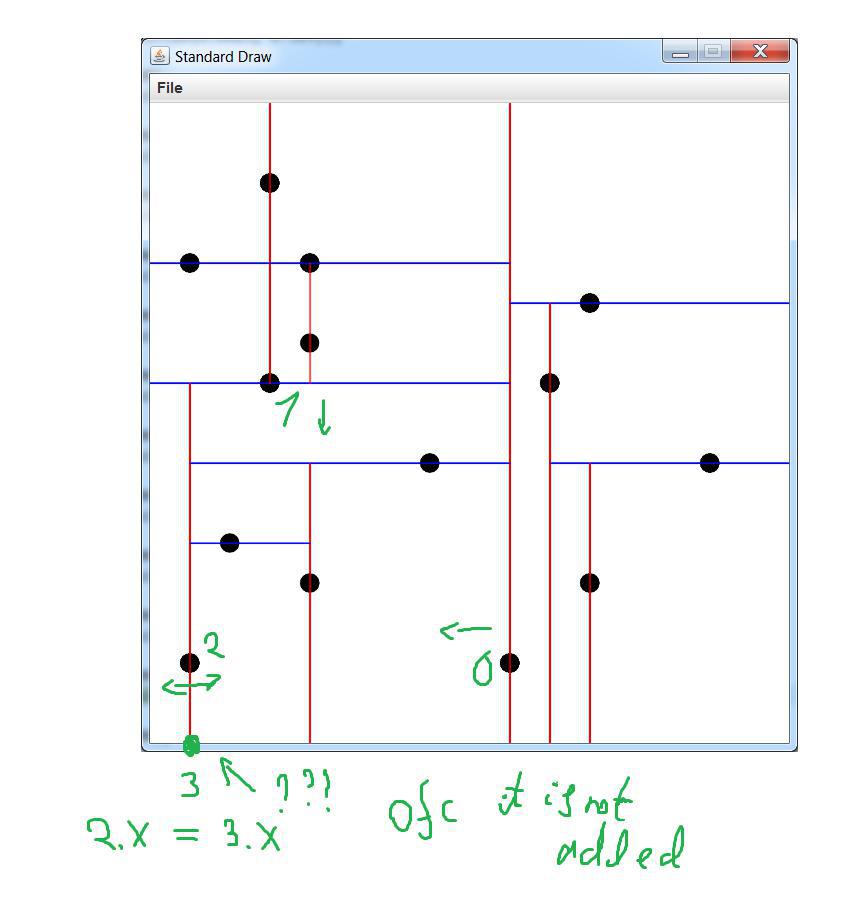 Standard Draw
File
1
2
0
3 ???
2.x = 3.x
Ofc it is not
added